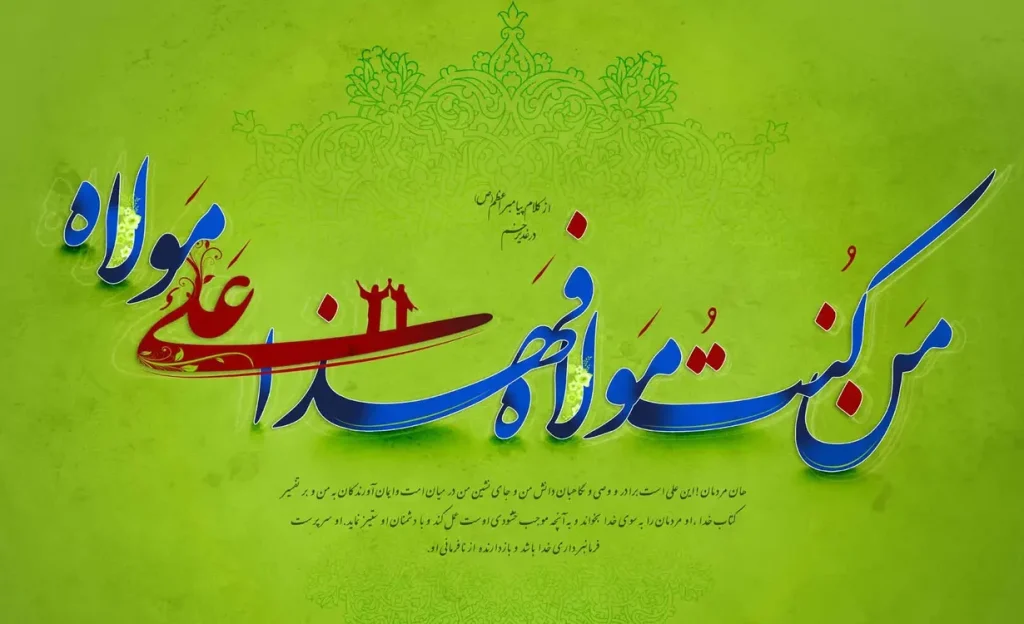 از کلام پیامبر اعظم(ص)
در غدیر خم
مَن کُنتُ مَولاه فَهذا عَلیٌ مَولاه
هان مردمان! این علی است برادر و وصی و نگاهبان دانش من و جای نشین من در میان امت و ایمان آورندگان به من و بر تفسیر
کتاب خدا، او مردمان را به سوی خدا بخواند و به آنچه موجب خشنودی اوست عمل کند و با دشمنان او ستیز نماید. او سرپرست
فرمانبرداری خدا باشد و بازدارنده از نافرمانی او.